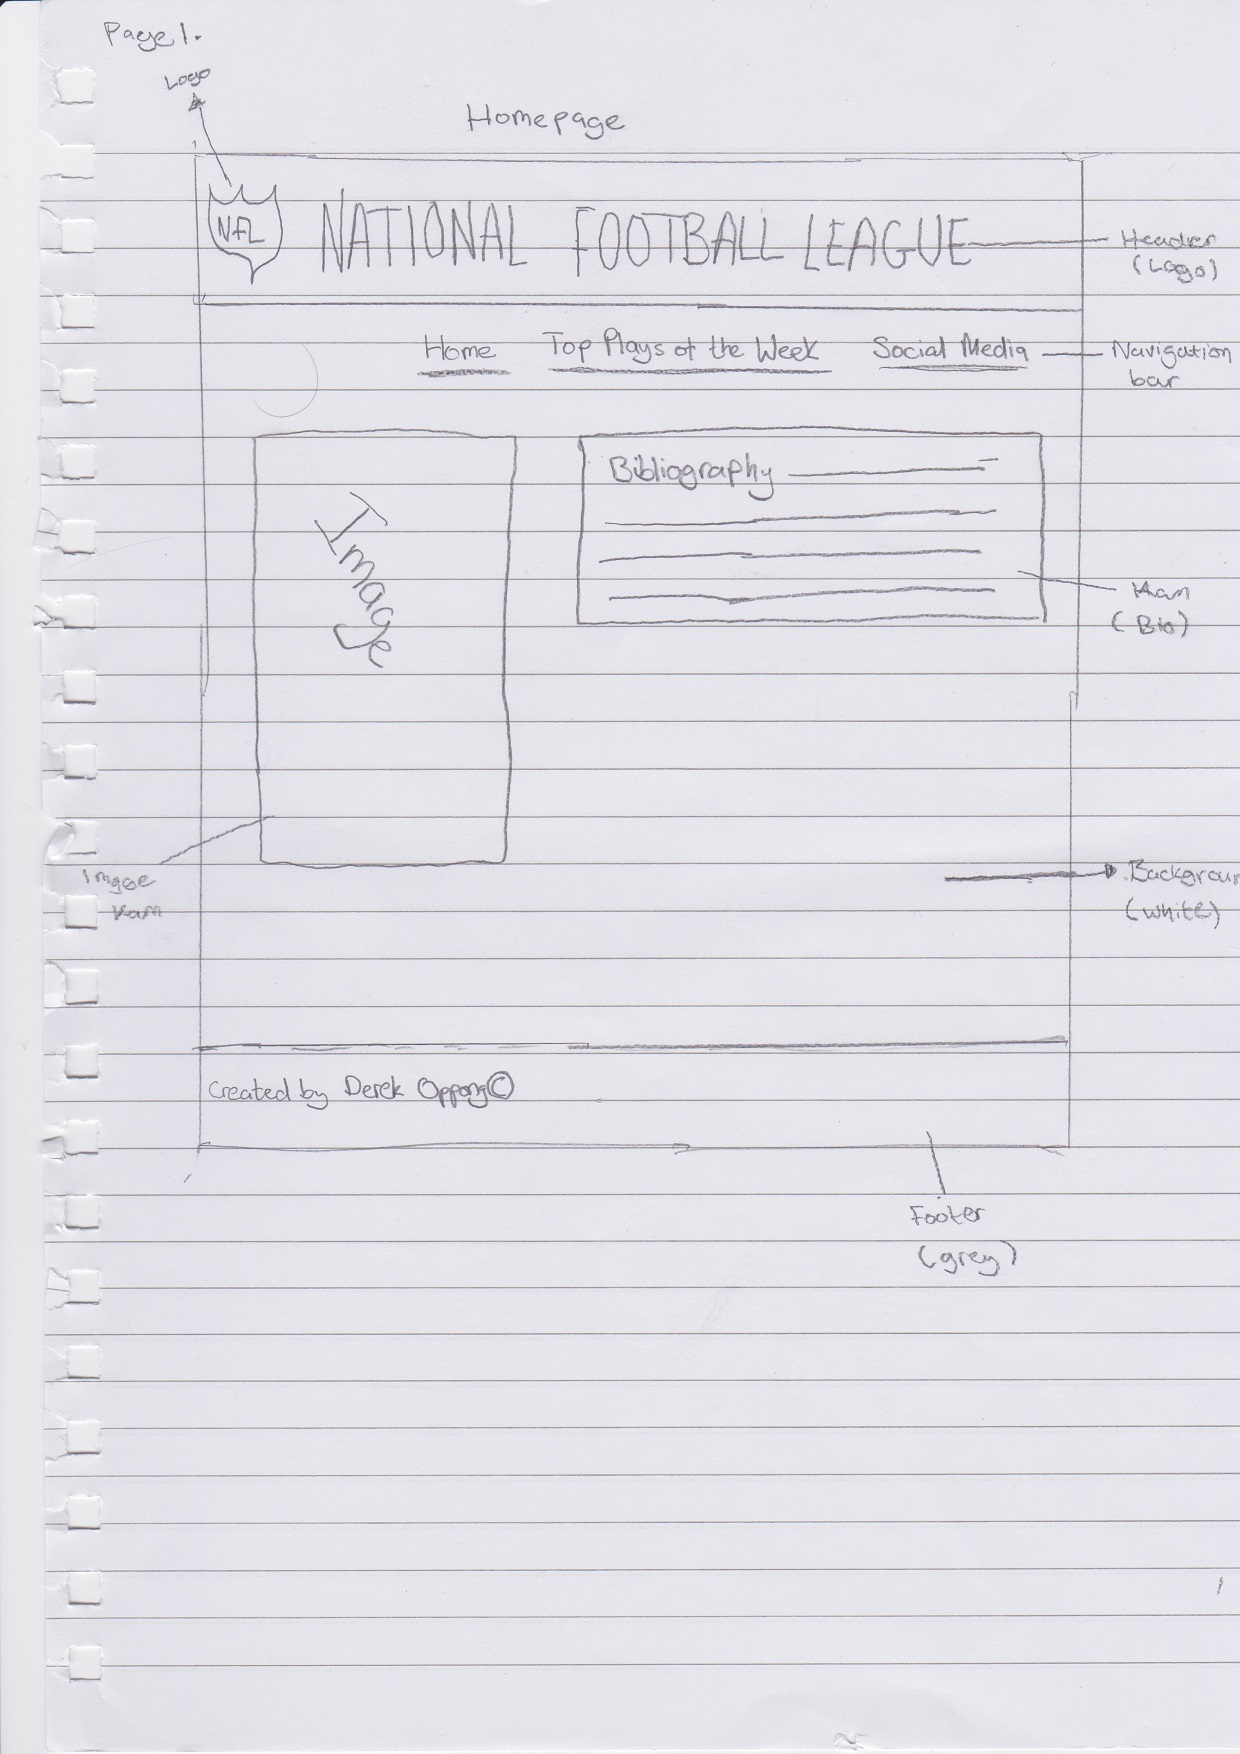 Page 1.
Logo
Homepage
NFL
NATIONAL FOOTBALL LEAGUE
Header
(Logo)
Home Top Plays of the Week Social Media
Navigation
bar
Bibliography
Image
(Bio)
Backgroun
(white)
Created by Derek Oppong©
Footer
(grey)